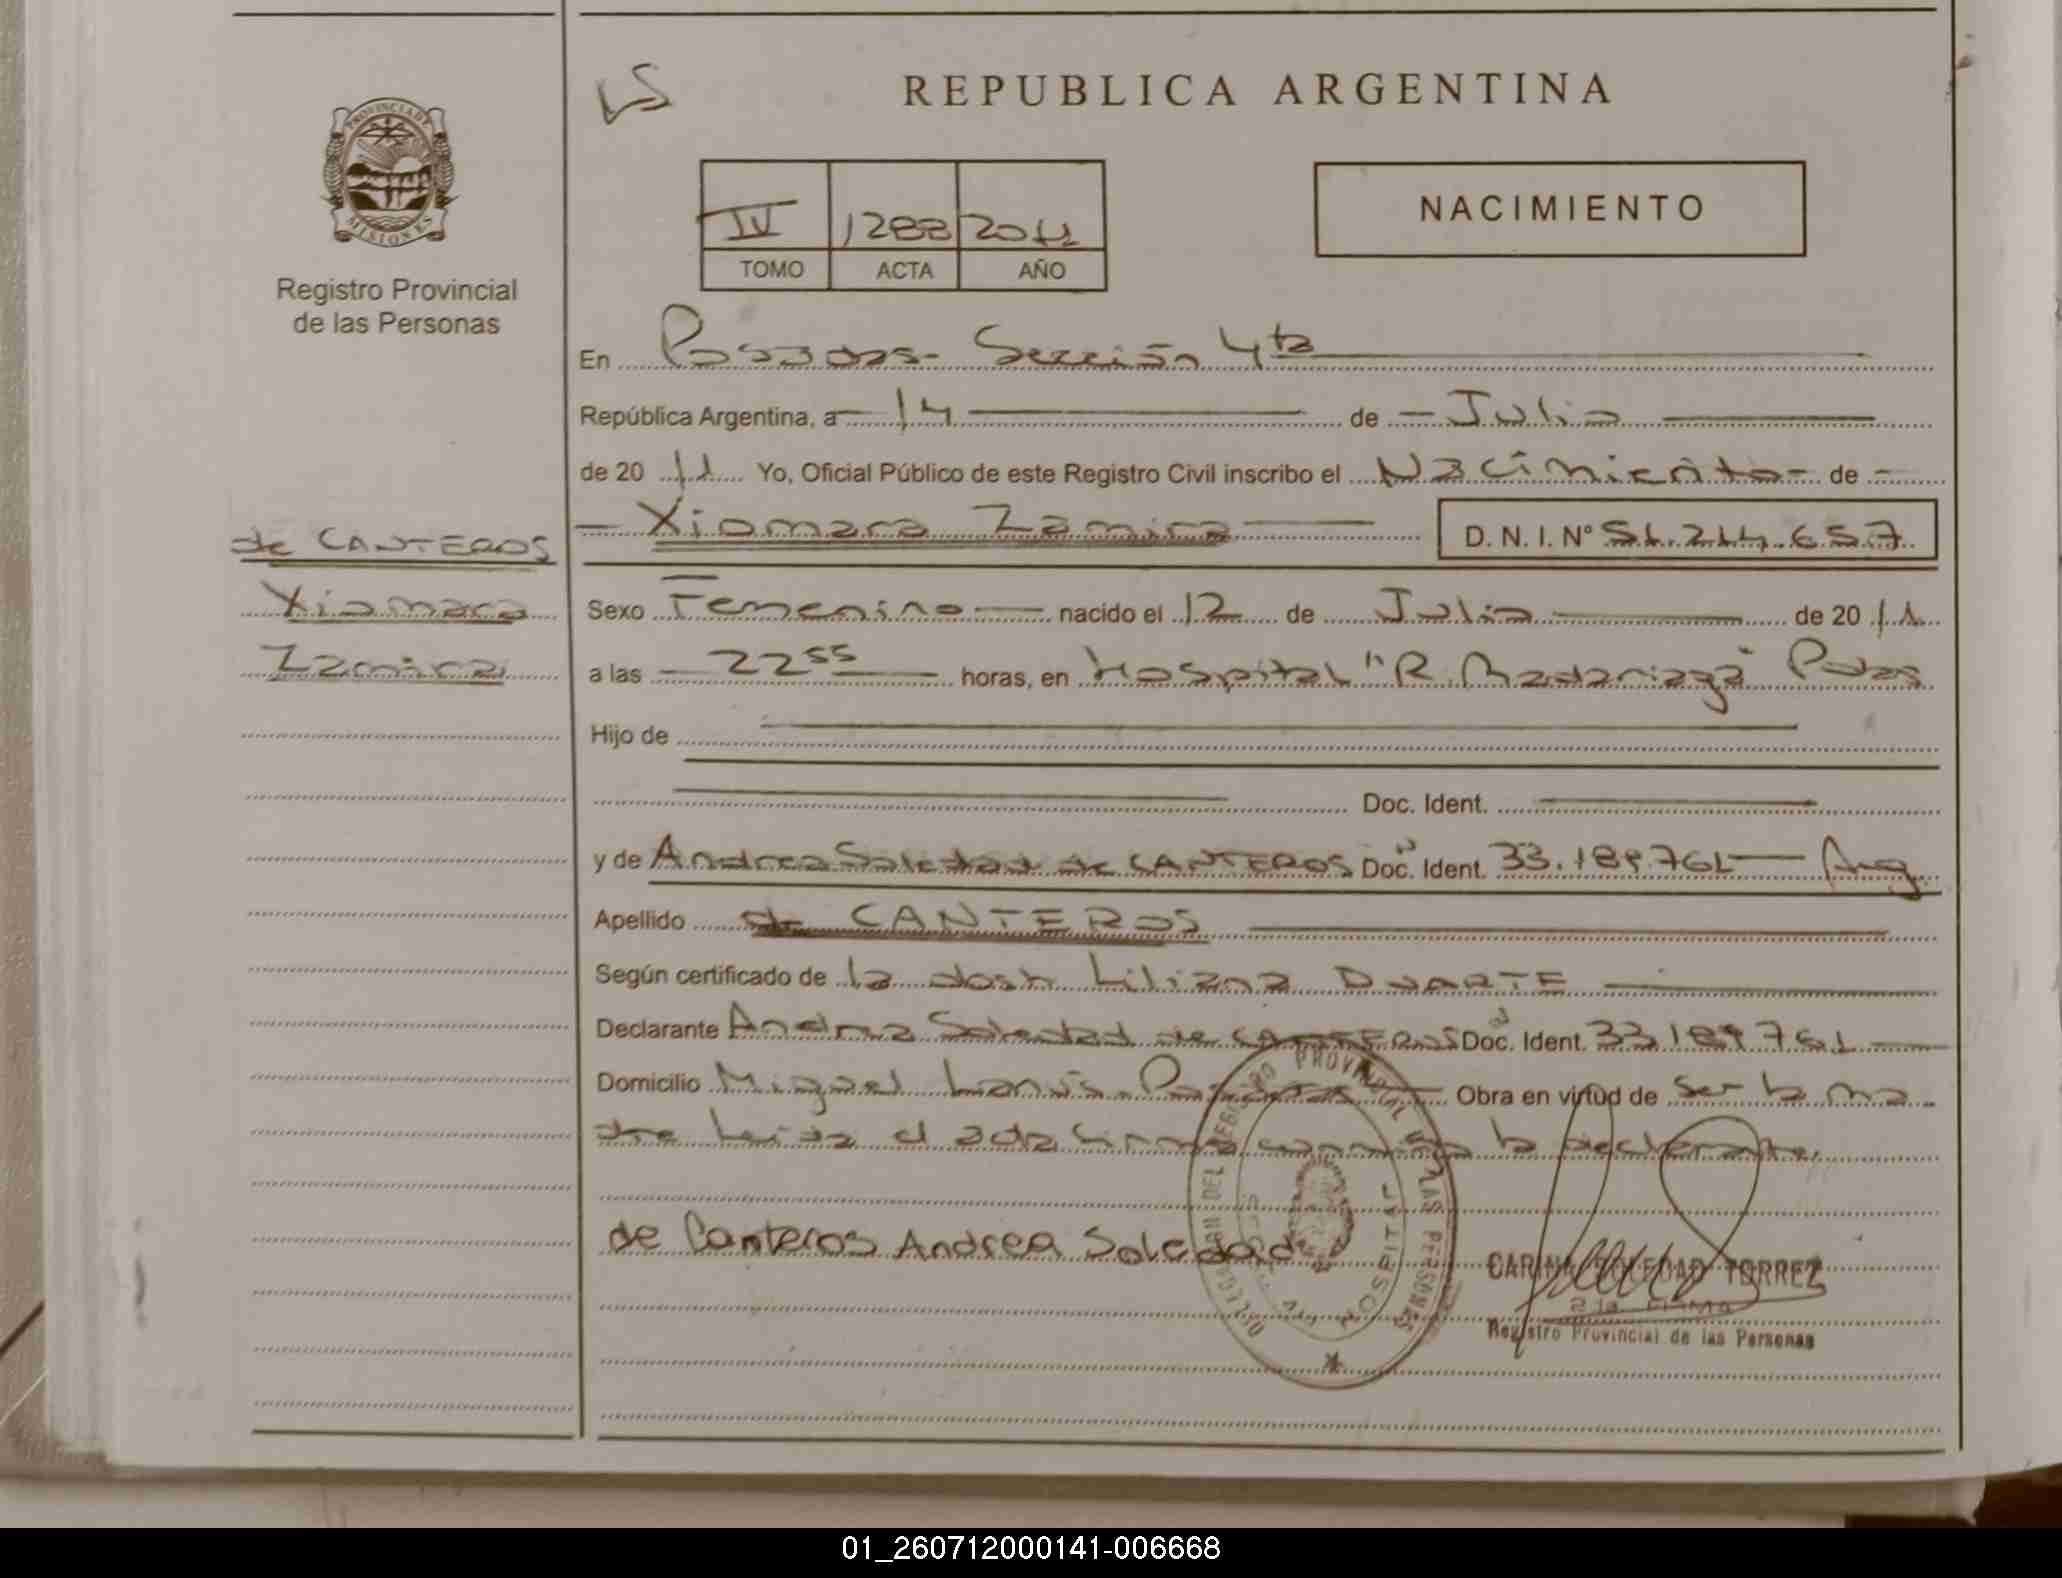 REPUBLICA ARGENTINA
PROVINCIA DE
MISIONES
Registro Provincial
de las Personas
IV 1288 2011
TOMO ACTA AÑO
NACIMIENTO
En Posadas- Sección 4ta
República Argentina, a 14 de Julio
de 2011 Yo, Oficial Público de este Registro Civil inscribo el Nacimiento de
Xiomara Zamira D. N. I. Nº 51.214.657
de CANTEROS
Xiomara
Zamira
Sexo Femenino nacido el 12 de Julio de 2011
a las 22 55 horas, en Hospital "R. Madariaga" Pdas
Hijo de
Doc. Ident.
y de Andrea Soledad de CANTEROS Doc. Ident. 33.189.761 Arg
Apellido de CANTEROS
Según certificado de la Liliana DUARTE
Declarante Andrea Soledad de CANTEROS Doc. Ident. 33.189.761
Domicilio Miguel Lanús. Posadas Obra en virtud de ser la ma
dre Leida el acta firma la declarante.
de Canteros Andrea Soledad
DELEGACION DEL REGISTRO PROVINCIAL DE LAS PERSONAS
HOSPITAL
CARINA SOLEDAD TORREZ
2da FIRMA
Registro Provincial de las Personas
01_260712000141-006668